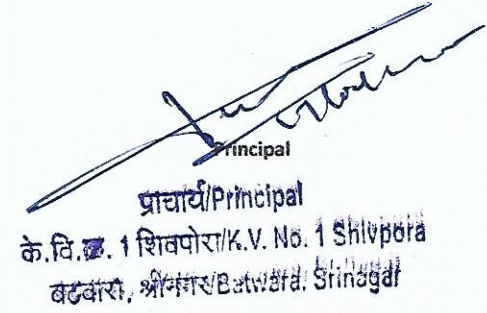 Principal
प्राचार्य/Principal
के.वि.क्र. 1 शिवपोरा/K.V. No. 1 Shivpora
बटवारा, श्रीनगर/Batwara, Srinagar